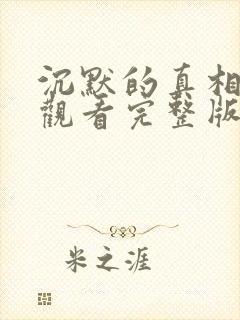 沉默的真相
觀看完整版
米之涯